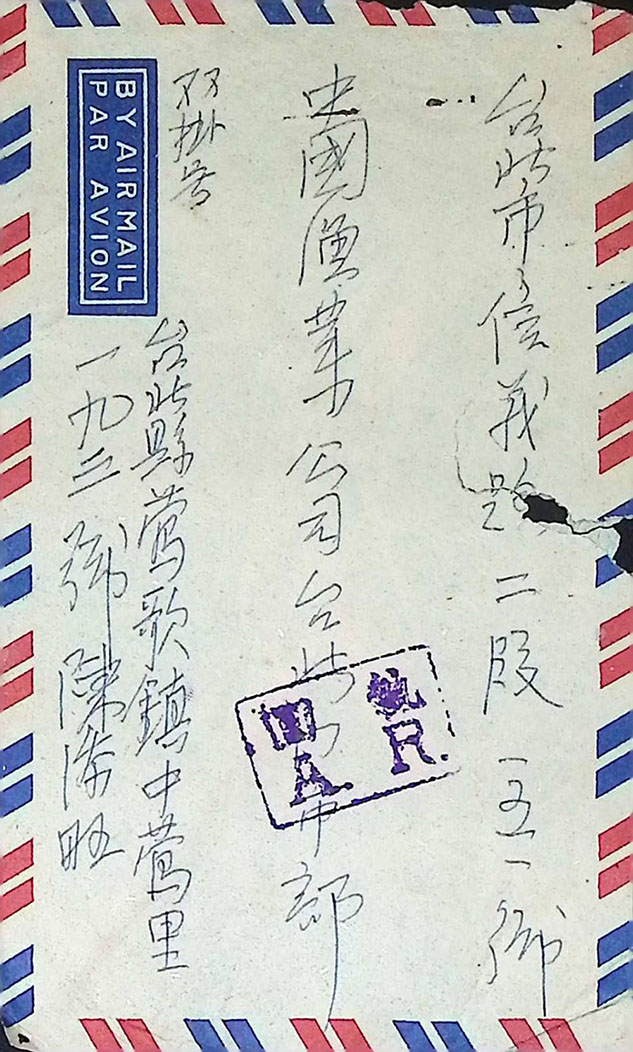 台北市信義路二段一五一號
中國漁業公司台北門市部
双掛号
台北縣鶯歌鎮中鶯里
一九三號陳添旺
BY AIR MAIL
PAR AVION
回執
A.R.